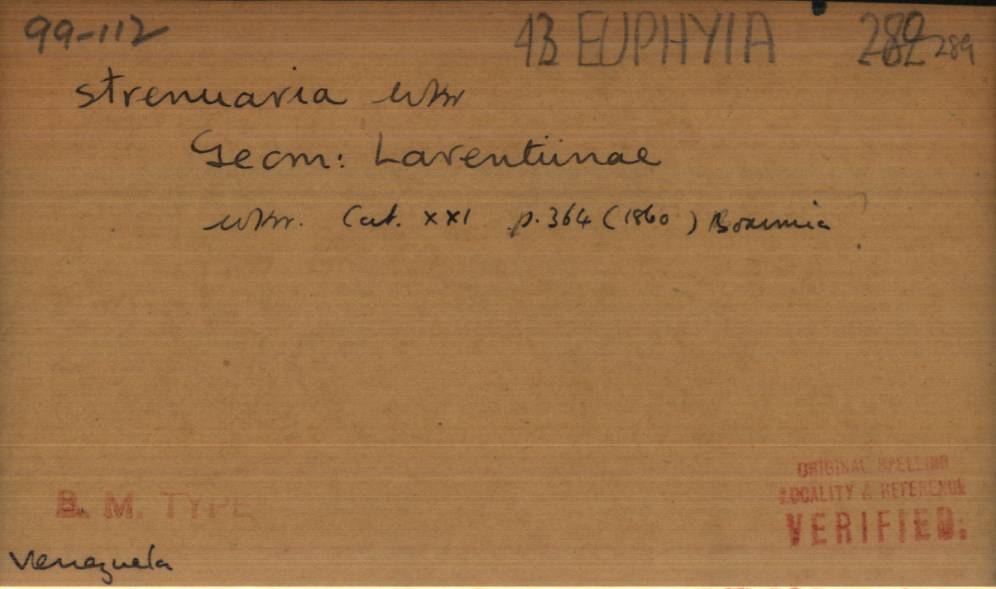 99-112 43 EUPHYIA 282 289
strenuaria Wkr
Geom: Larentiinae
Wkr. Cat. XXI p. 364 (1860)
ORIGINAL SPELLING
LOCALITY & REFERENCE
VERIFIED.
B. M. TYPE
Venezuela